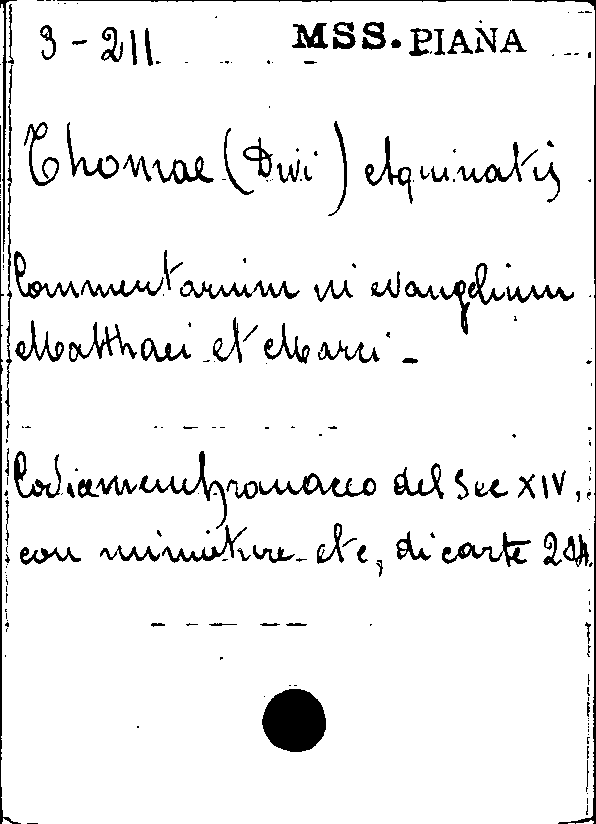 3-211 MSS. PIANA
Thomae (Divi) Aquinatis
Commentarium in evangelium
Matthaei et Marci -
Codice membranaceo del Sec XIV,
con miniature etc, di carte 204.